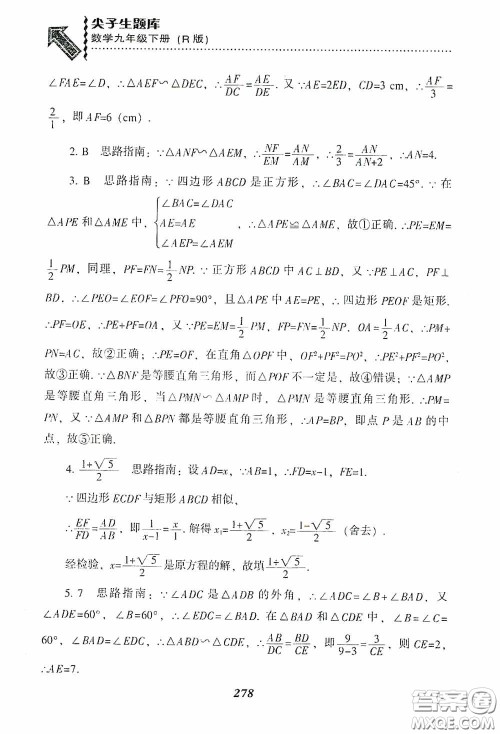 尖子生题库
数学九年级下册（R版）
∠FAE=∠D，∴△AEF∽△DEC，∴AF/DC=AE/DE. 又∵AE=2ED，CD=3 cm，∴AF/3=
2/1，即AF=6（cm）.
2. B　思路指南：∵△ANF∽△AEM，∴NF/EM=AN/AM，∴2/3=AN/(AN+2)，∴AN=4.
3. B　思路指南：∵四边形ABCD是正方形，∴∠BAC=∠DAC=45°. ∵在
△APE和△AME中，{∠BAC=∠DAC
AE=AE
∠AEP=∠AEM，∴△APE≌△AME，故①正确. ∴PE=EM=
1/2PM，同理，PF=FN=1/2NP. ∵正方形ABCD中AC⊥BD，又∵PE⊥AC，PF⊥
BD，∴∠PEO=∠EOF=∠PFO=90°，且△APE中AE=PE，∴四边形PEOF是矩形.
∴PF=OE，∴PE+PF=OA，又∵PE=EM=1/2PM，FP=FN=1/2NP，OA=1/2AC，∴PM+
PN=AC，故②正确；∴PE=OF，在直角△OPF中，OF²+PF²=PO²，∴PE²+PF²=PO²，
故③正确. ∵△BNF是等腰直角三角形，而△POF不一定是，故④错误；∵△AMP
是等腰直角三角形，当△PMN∽△AMP时，△PMN是等腰直角三角形. ∴PM=
PN，又∵△AMP和△BPN都是等腰直角三角形，∴AP=BP，即点P是AB的中
点，故⑤正确.
4. (1+√5)/2　思路指南：设AD=x，∵AB=1，∴FD=x-1，FE=1.
∵四边形ECDF与矩形ABCD相似，
∴EF/FD=AD/AB，即1/(x-1)=x/1. 解得x₁=(1+√5)/2，x₂=(1-√5)/2（舍去）.
经检验，x=(1+√5)/2是原方程的解，故填(1+√5)/2.
5. 7　思路指南：∵∠ADC是△ADB的外角，∴∠ADC=∠B+∠BAD，又
∠ADE=60°，∠B=60°，∴∠EDC=∠BAD. 在△BAD和△CDE中，∠B=∠C=
60°，∠BAD=∠EDC，∴△ABD∽△CDE，∴AB/DC=BD/CE，即9/(9-3)=3/CE，则CE=2，
∴AE=7.
278